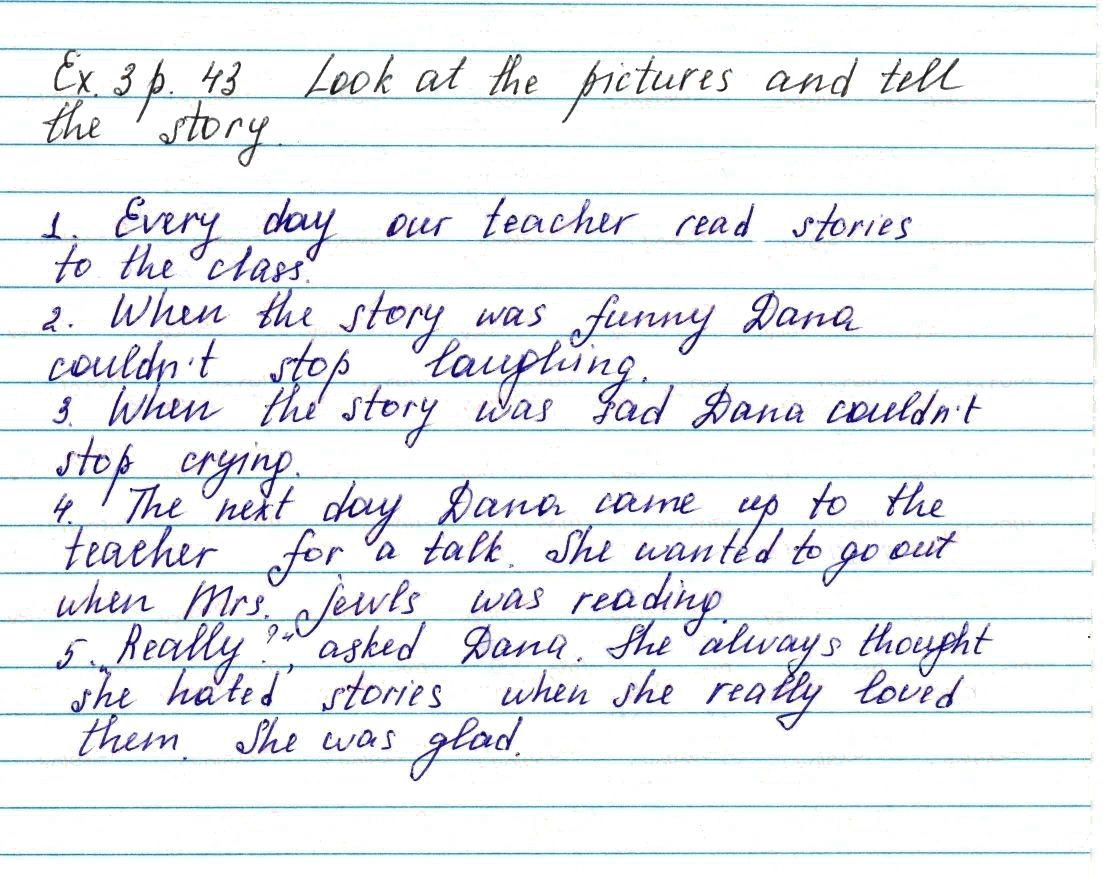 Ex. 3 p. 43 Look at the pictures and tell
the story.
1. Every day our teacher read stories
to the class.
2. When the story was funny Dana
couldn't stop laughing.
3. When the story was sad Dana couldn't
stop crying.
4. The next day Dana came up to the
teacher for a talk. She wanted to go out
when Mrs. Jewls was reading.
5. „Really?“, asked Dana. She always thought
she hated stories when she really loved
them. She was glad.